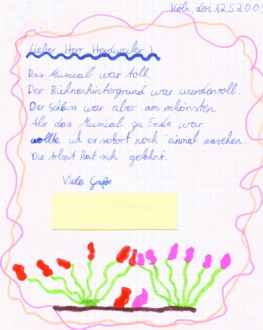 Köln, den 12.5.200
Lieber Herr
Das Musical war toll.
Der Bühnenhintergrund war wundervoll.
Der Schluss war aber am schönsten.
Als das Musical zu Ende war
wollte ich es sofort noch einmal ansehen.
Die Arbeit hat sich gelohnt.
Viele Grüße